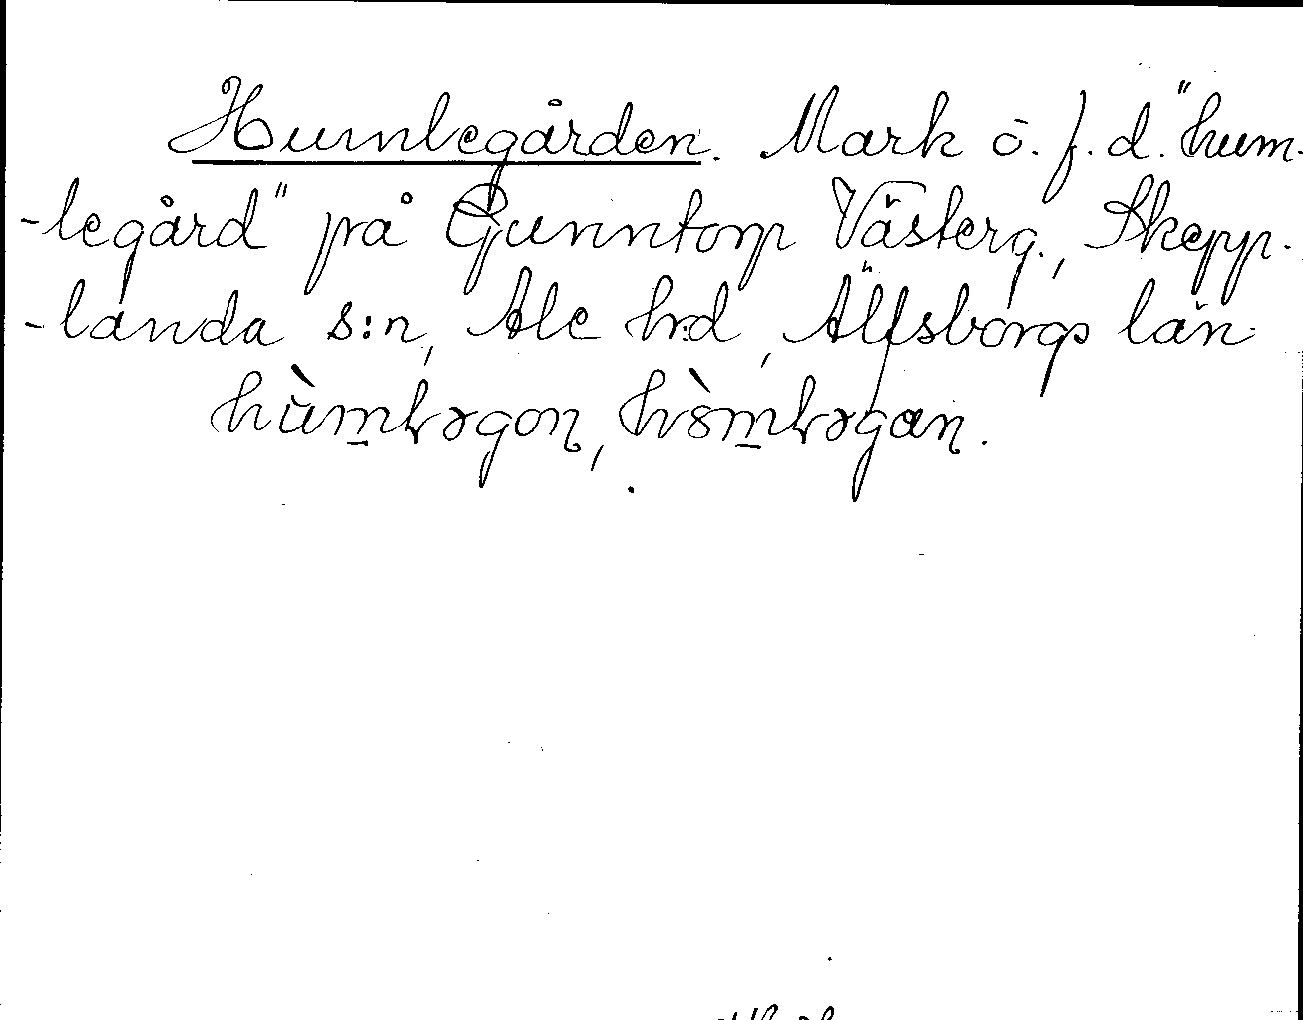 Humlegården. Mark ö. f. d. "hum-
-legård" på Gunntorp Västerg., Skepp-
-landa s:n, Ale h:d, Älfsborgs län